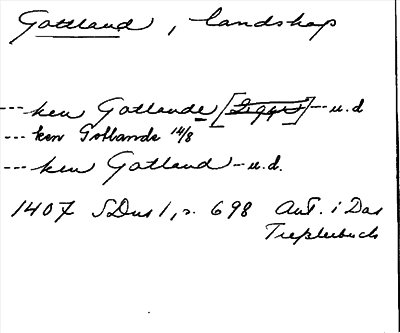 Gottland, landskap
--- ken Gotlande [ligger] -- u.d
--- ken Gotlande 14/8
--- ken Gotland - u.d.
1407 SDns 1, s. 698 Ant. i Das
Tresslerbuch